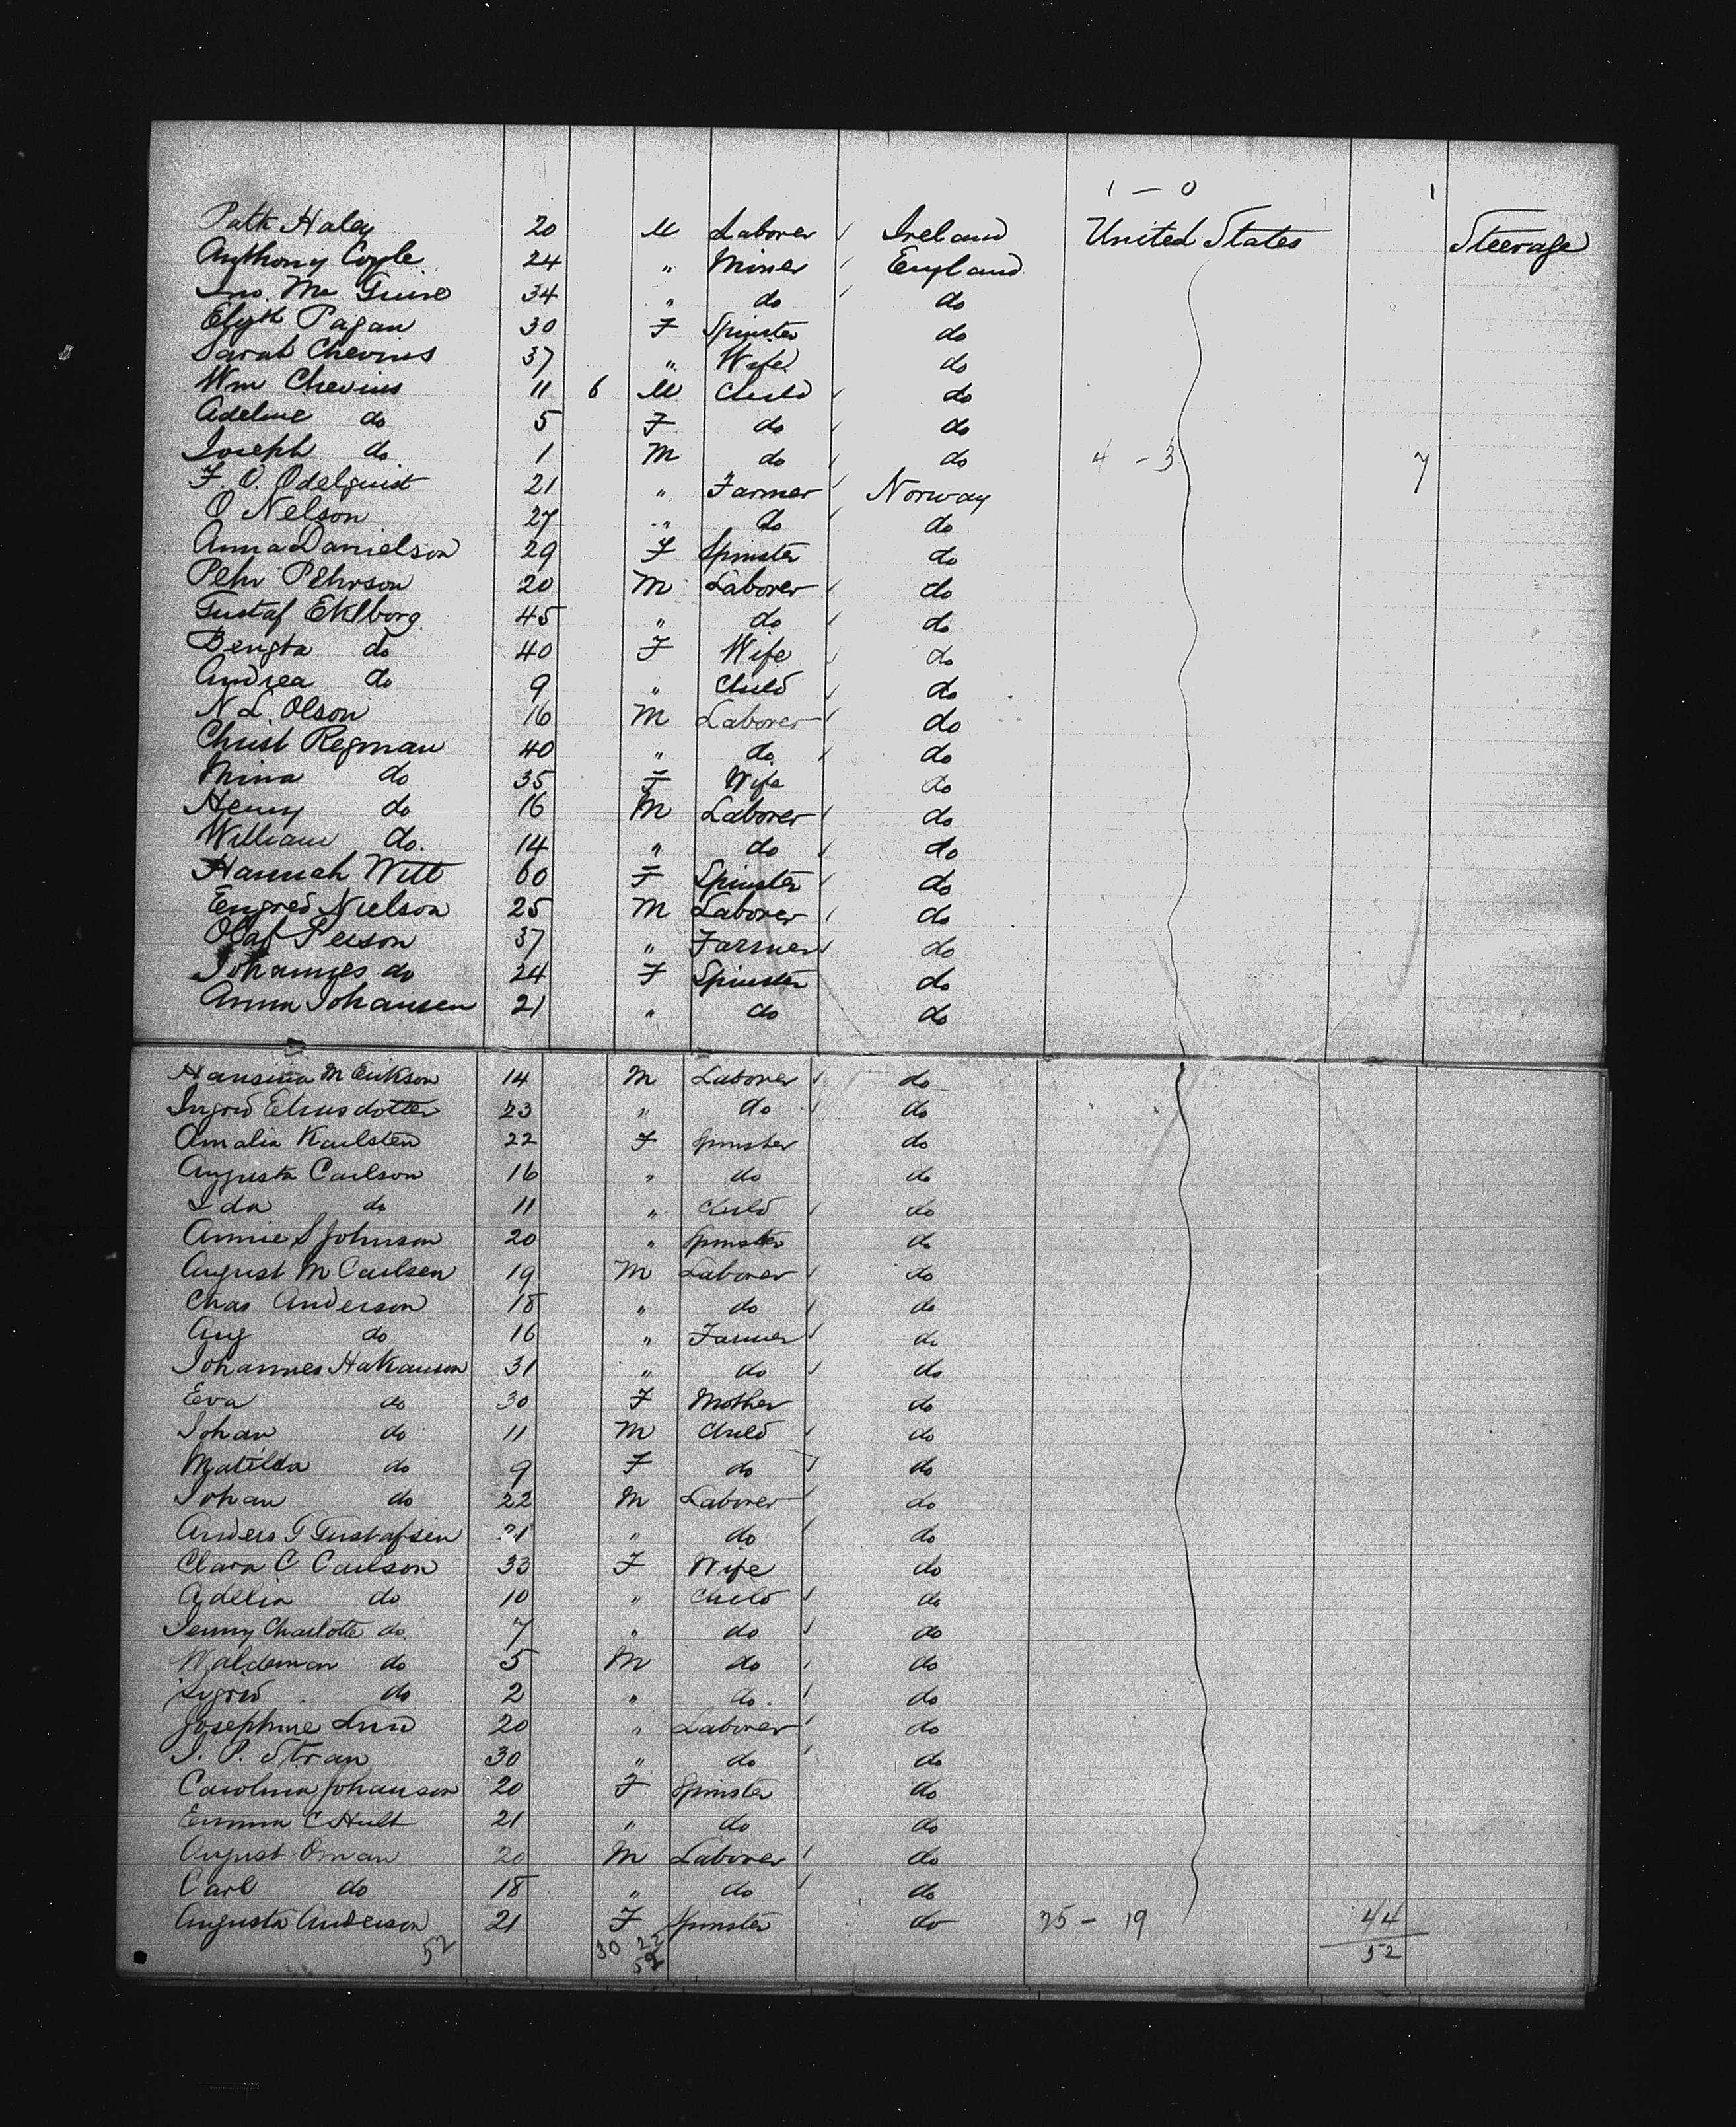 1 - 0 1
Patk Haley 20 M Laborer Ireland United States Steerage
Anthony Coyle 24 " Miner England
Jno. Mc Guire 34 " do do
Elizth Pagan 30 F Spinster do
Sarah Chevins 37 " Wife do
Wm Chevins 11 6 M Child do
Adeline do 5 F do do
Joseph do 1 M do do 4 - 3 7
F. O. Odelquist 21 " Farmer Norway
O Nelson 27 " do do
Anna Danielson 29 F Spinster do
Pehr Pehrson 20 M Laborer do
Gustaf Eklborg 45 " do do
Bengta do 40 F Wife do
Andrea do 9 " Child do
N L. Olson 16 M Laborer do
Christ Regman 40 " do do
Mina do 35 F Wife do
Henry do 16 M Laborer do
William do. 14 " do do
Hannah Witt 60 F Spinster do
Engred Nielson 25 M Laborer do
Olaf Person 37 " Farmer do
Johannes do 24 F Spinster do
Anna Johansen 21 " do do
Hansina M Erikson 14 M Laborer do
Ingrid Elmsdotter 23 " do do
Amalia Karlsten 22 F Spinster do
Augusta Carlson 16 " do do
Ida do 11 " Child do
Annie S Johnson 20 " Spinster do
August M Carlsen 19 M Laborer do
Chas Anderson 18 " do do
Aug do 16 " Farmer do
Johannes Hakanson 31 " do do
Eva do 30 F Mother do
Johan do 11 M Child do
Matilda do 9 F do do
Johan do 22 M Laborer do
Anders G Gustafsen 21 " do do
Clara C Carlson 33 F Wife do
Adelia do 10 " Child do
Jenny Charlotte do 7 " do do
Waldeman do 5 M do do
Sigrid do 2 " do. do
Josephine Lund 20 " Laborer do
J. P. Stran 30 " do do
Carolina Johanson 20 F Spinster do
Emma C Hult 21 " do do
August Oman 20 M Laborer do
Carl do 18 " do do
Augusta Anderson 21 F Spinster do 25 - 19 44
52 30 22 52
52